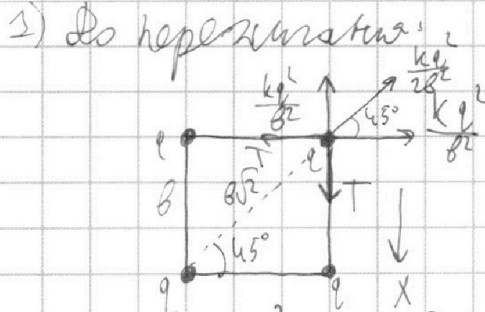 1) До пережигания:
kq²/2b²
kq²/b²
45°
kq²/b²
q
T
q
b
b√2
T
45°
q
q
X